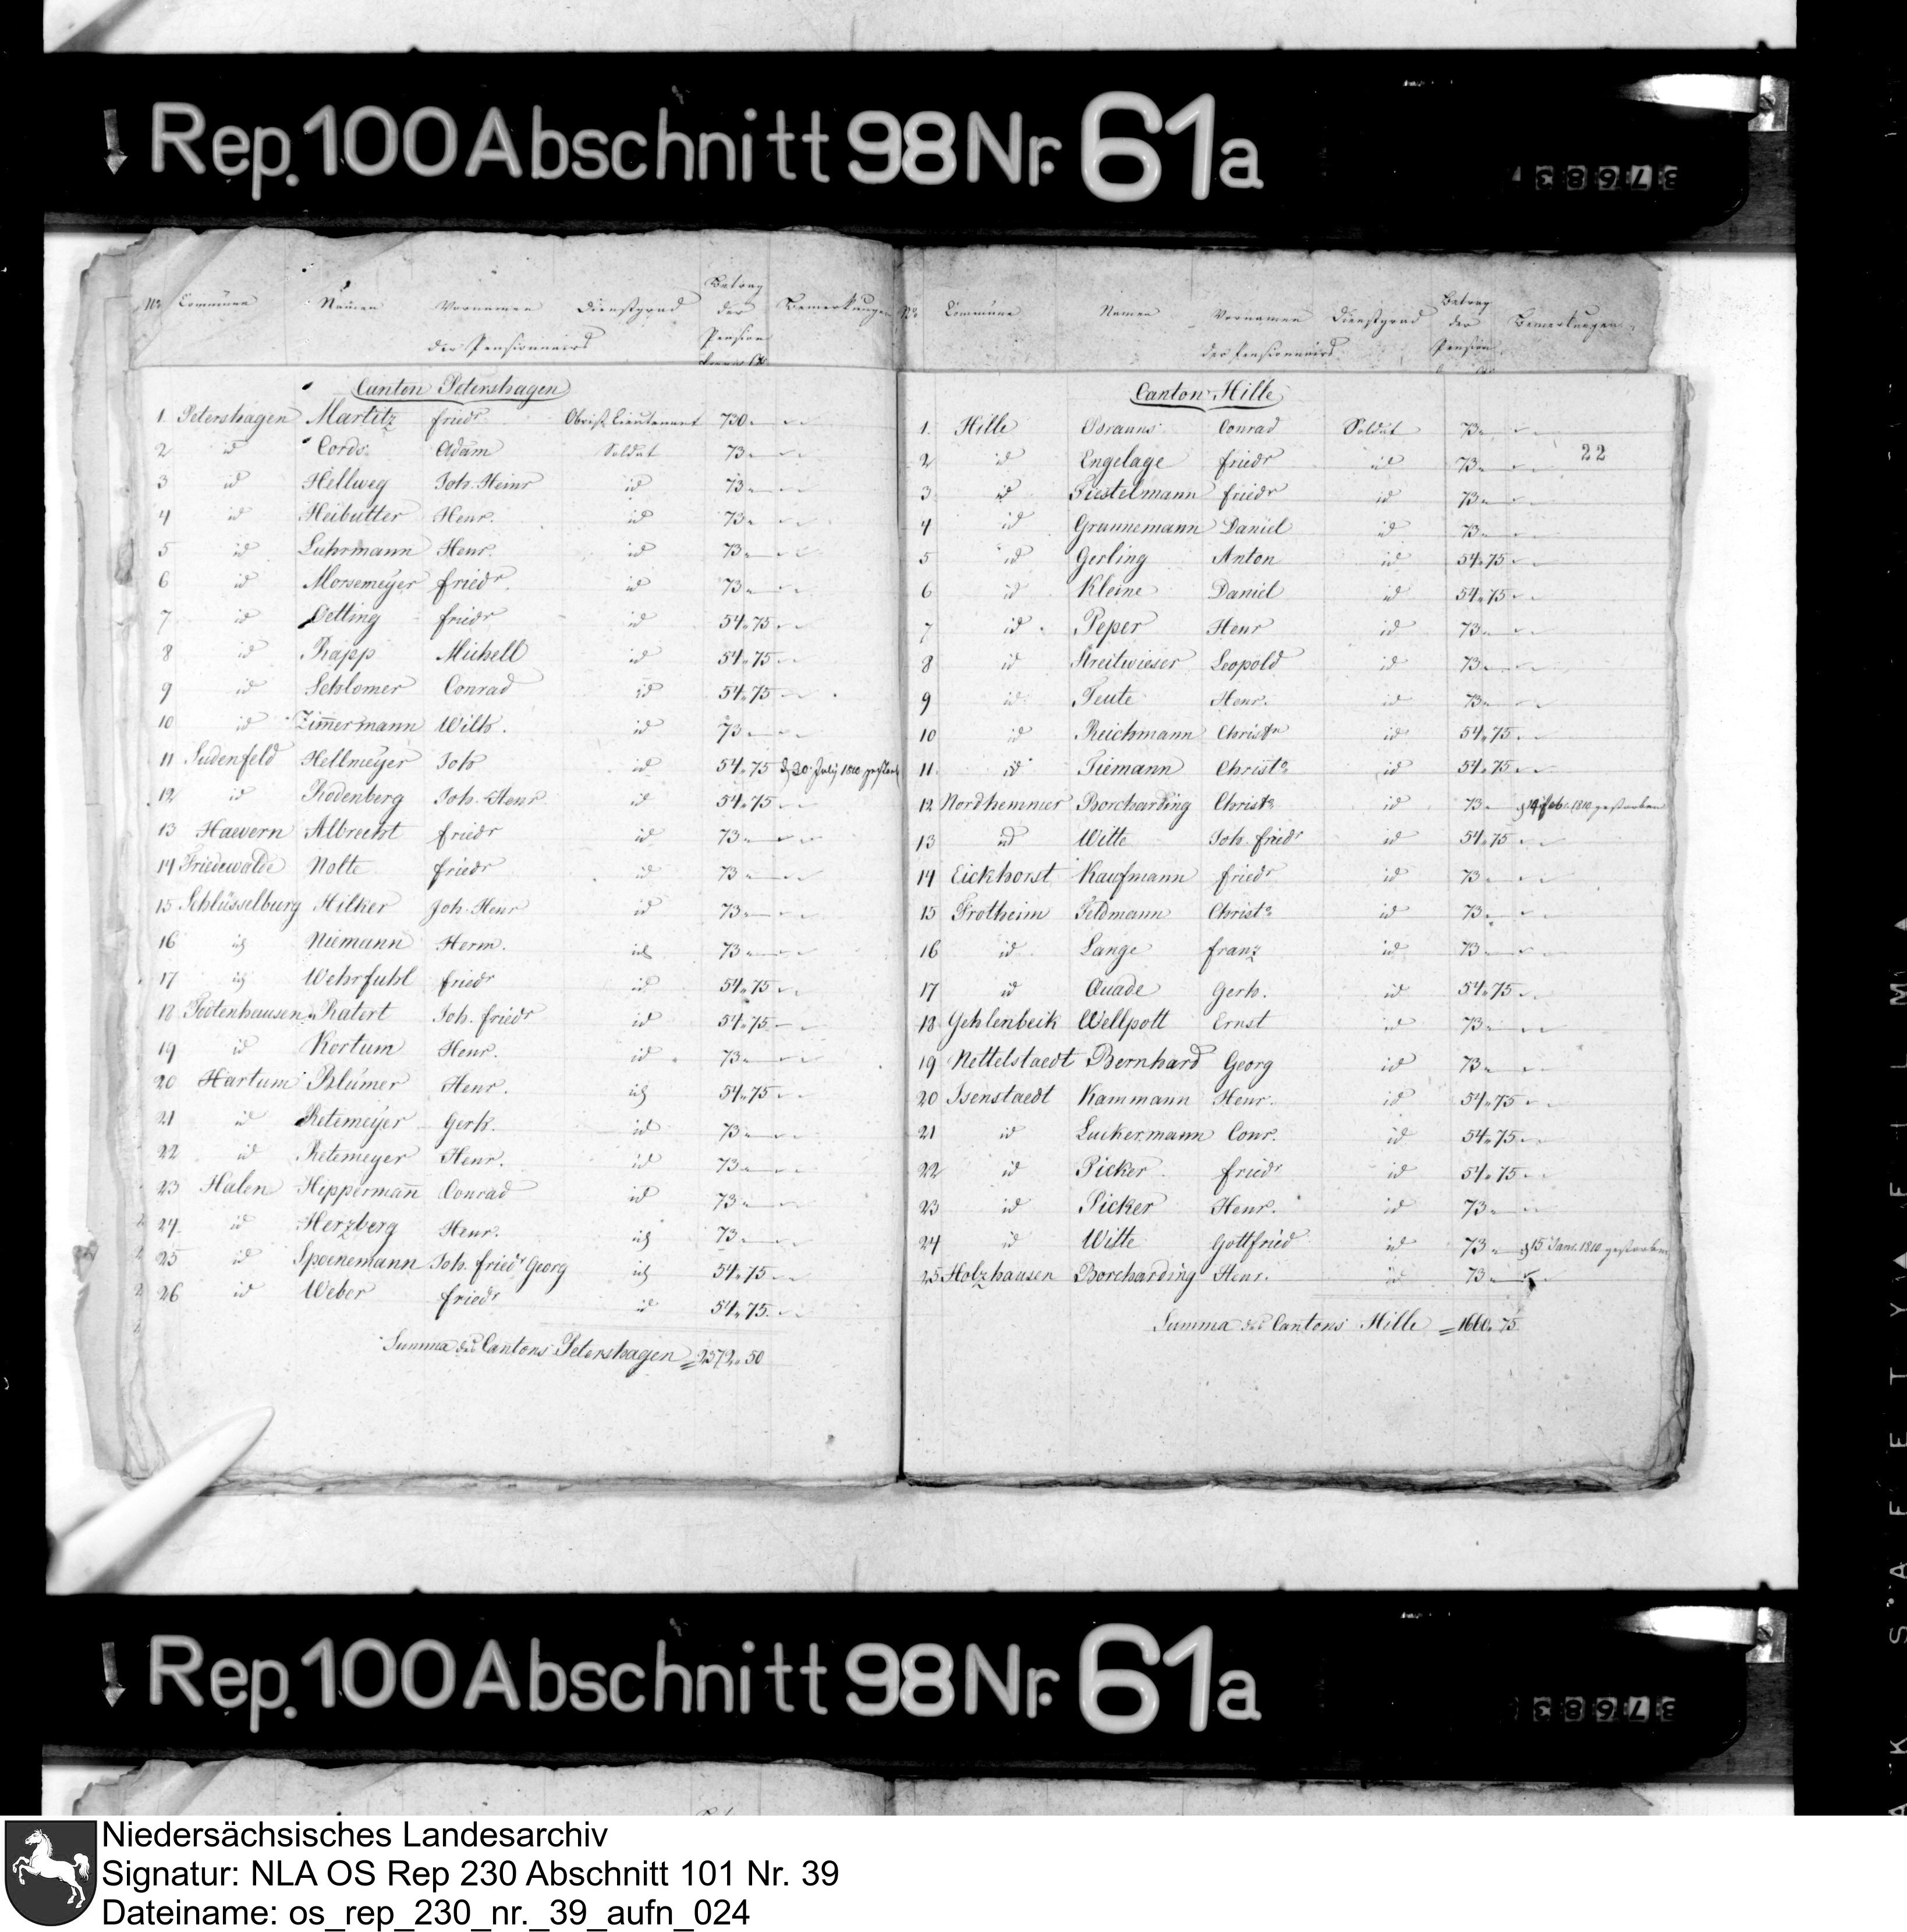 Rep. 100 Abschnitt 98 Nr. 61a
Nr Commüne Namen Vornamen Dienstgrad Betrag der Pension Bemerkungen
des Pensionnairs
Canton Petershagen
1 Petershagen Martitz friedr Obrist Lieutenant 730
2 id Cords Adam Soldat 73
3 id Hellweg Joh. Heinr id 73
4 id Heibutter Henr. id 73
5 id Luhrmann Henr. id 73
6 id Morsemeyer friedr. id 73
7 id Oetting friedr id 54.75
8 id Rapp Michell id 54.75
9 id Schlomer Conrad id 54.75
10 id Zimermann Wilh. id 73
11 Sudenfeld Hellmeyer Joh id 54.75 d 20 July 1810 gestorb
12 id Rodenberg Joh. Henr id 54.75
13 Haevern Albrecht friedr id 73
14 Friedewalde Nolte friedr id 73
15 Schlüsselburg Hilker Joh. Henr id 73
16 id Niemann Herm. id 73
17 id Wehrfuhl friedr id 54.75
18 Tootenhausen Ratert Joh. friedr id 54.75
19 id Kortum Henr. id 73
20 Hartum Blümer Henr. id 54.75
21 id Retemeyer Gerh. id 73
22 id Retemeyer Henr. id 73
23 Halen Hippermañ Conrad id 73
24 id Herzberg Henr. id 73
25 id Spoenemann Joh. friedr Georg id 54.75
26 id Weber friedr id 54.75
Summa des Cantons Petershagen = 2572.50
Nr Commüne Namen Vornamen Dienstgrad Betrag der Pension Bemerkungen
des Pensionnairs
Canton Hille
22
1. Hille Conrad Soldat 73
2 id Engelage friedr id 73
3 id Fiestelmann friedr id 73
4 id Grannemann Daniel id 73
5 id Gerling Anton id 54.75
6 id Kleine Daniel id 54.75
7 id Peper Henr id 73
8 id Streitwieser Leopold id 73
9 id Teute Henr. id 73
10 id Reichmann Christn id 54.75
11 id Tiemann Christn id 54.75
12 Nordhemmer Borcharding Christn id 73 d 14 feb. 1810 gestorben
13 id Witte Joh. friedr id 54.75
14 Eickhorst Kaufmann friedr id 73
15 Frotheim Feldmann Christn id 73
16 id Lange franz id 73
17 id Quade Gerh. id 54.75
18 Gehlenbeik Wellpott Ernst id 73
19 Nettelstaedt Bernhard Georg id 73
20 Isenstaedt Kammann Henr. id 54.75
21 id Luckermann Conr. id 54.75
22 id Picker friedr id 54.75
23 id Picker Henr. id 73
24 id Witte Gottfried id 73 d 15 Janr. 1810 gestorben
25 Holzhausen Borcharding Henr. id 73
Summa des Cantons Hille = 1660.75
Rep. 100 Abschnitt 98 Nr. 61a
Niedersächsisches Landesarchiv
Signatur: NLA OS Rep 230 Abschnitt 101 Nr. 39
Dateiname: os_rep_230_nr._39_aufn_024